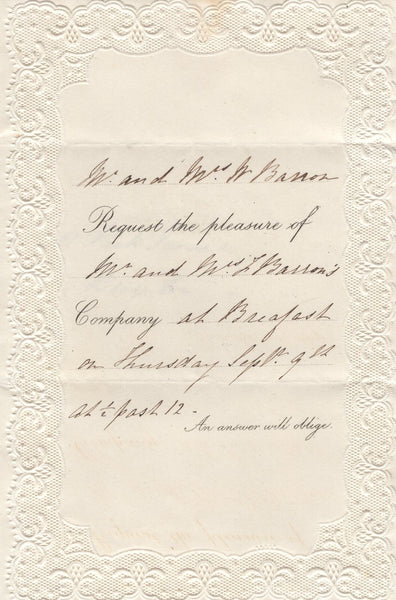 Mr. and Mrs W Barron
Request the pleasure of
Mr. and Mrs T Barron's
Company at Breafast
on Thursday Septr. 9th
at ½ past 12 -
An answer will oblige.